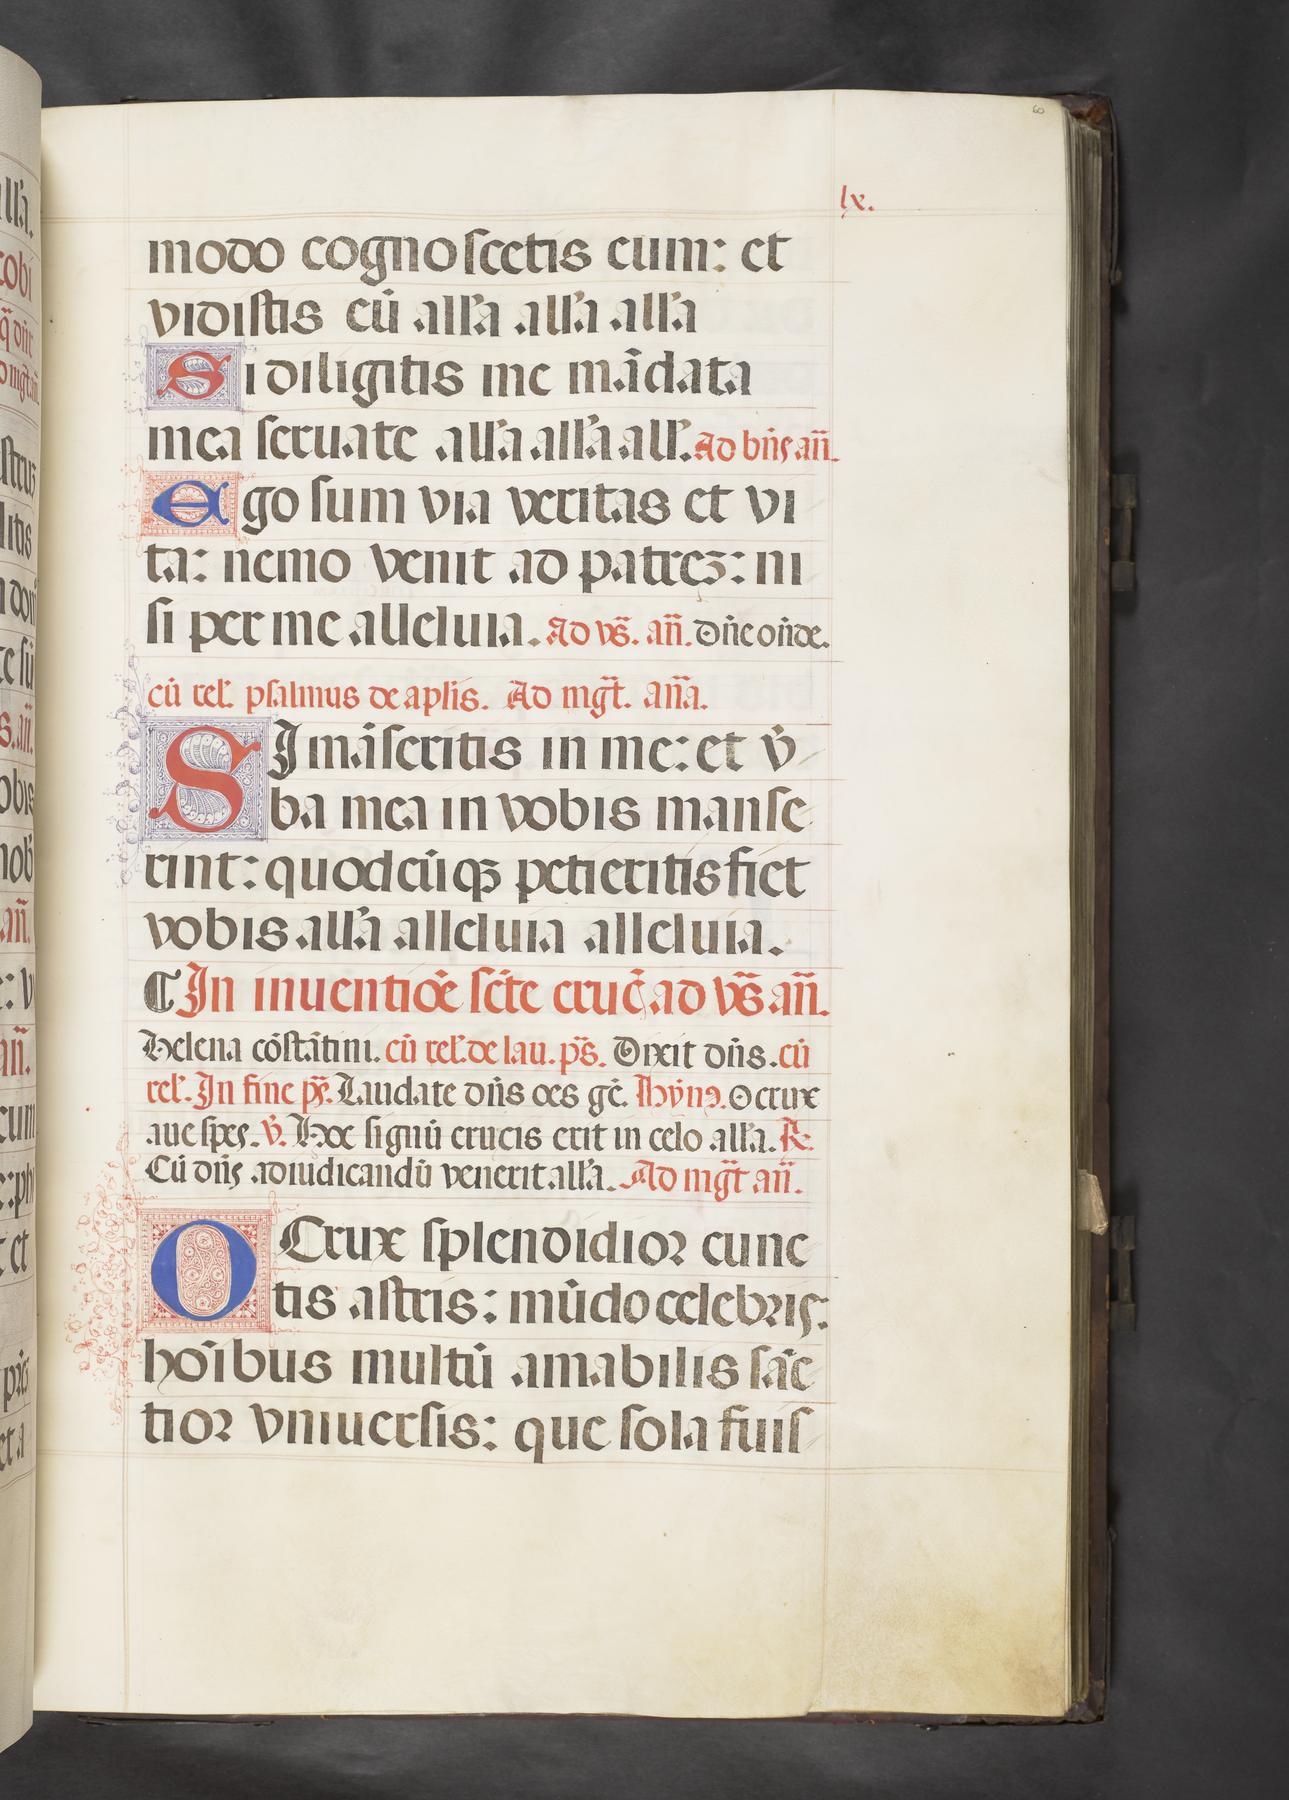 60
lx.
modo cognoscetis eum: et
vidistis eū all'a all'a all'a
Si diligitis me mādata
mea seruate all'a all'a all'. Ad bn̄s an̄.
Ego sum via veritas et vi
ta: nemo venit ad patreʒ: ni
si per me alleluia. Ad vs̄. an̄. Dn̄e on̄de.
cū rel'. psalmus de aplis. Ad mgt̄. an̄a.
SI māseritis in me: et v̄
ba mea in vobis manse
rint: quodcūqꝫ petieritis fiet
vobis all'a alleluia alleluia.
¶ In inuentiōe sct̄e cruc̄ ad vs̄ an̄.
Helena cōstātini. cū rel'. de lau. ps̄. Dixit dn̄s. cū
rel'. In fine ps̄. Laudate dn̄s oēs gē. Hȳnꝫ. O crux
aue spes. v̄. Hoc signū crucis erit in celo all'a. ℟.
Cū dn̄s ad iudicandū venerit all'a. Ad mgt̄ an̄.
O Crux splendidior cunc
tis astris: mūdo celebris:
hoībus multū amabilis sāc
tior vniuersis: que sola fuis